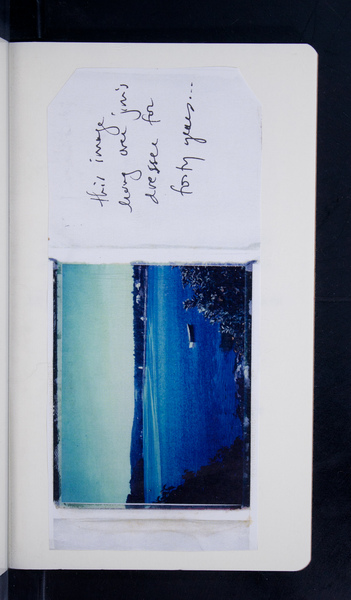 this image
hung over jm's
dresser for
forty years...